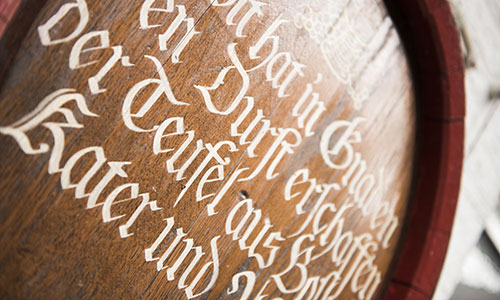 hat in Gnaden
en Durſt erſchaffen
der Teufel aus
Kater und